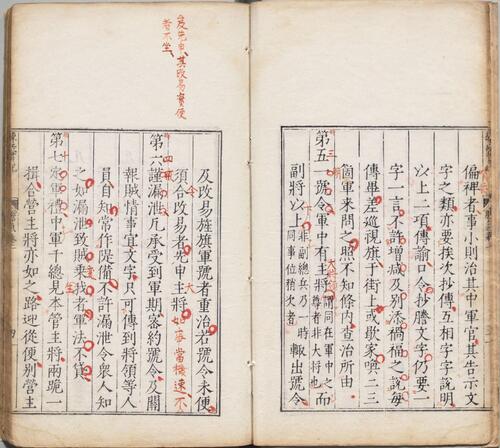 偏裨者事小則治其中軍官其告示文
字之類亦要挨次抄傳互相字字說明
以上二項傳諭口令抄謄文字仍要一
字一言不許增減及別添禍福之說每
傳畢差巡視旗于街上或歇家喚二三
箇軍來問之照不知條內查治所由
第五一號令軍中有主將謂同在軍中之而尊者非大將也
副將以上非副總兵乃一時同事位稍次者輒出號令
及改易旌旗軍號者重治若號令未便
須合改易者先申主將如事當機速不
及先申其改易實便
者不坐
第六謹漏泄凡承受到軍期密約號令及關
報賊情事宜文字只可傳到將領等人
員自知常作隄備不許漏泄令衆人知
之如漏泄致賊乘我者軍法不貸
第七定軍禮中軍千總見本管主將兩跪一
揖合營主將亦如之路迎從便別營主